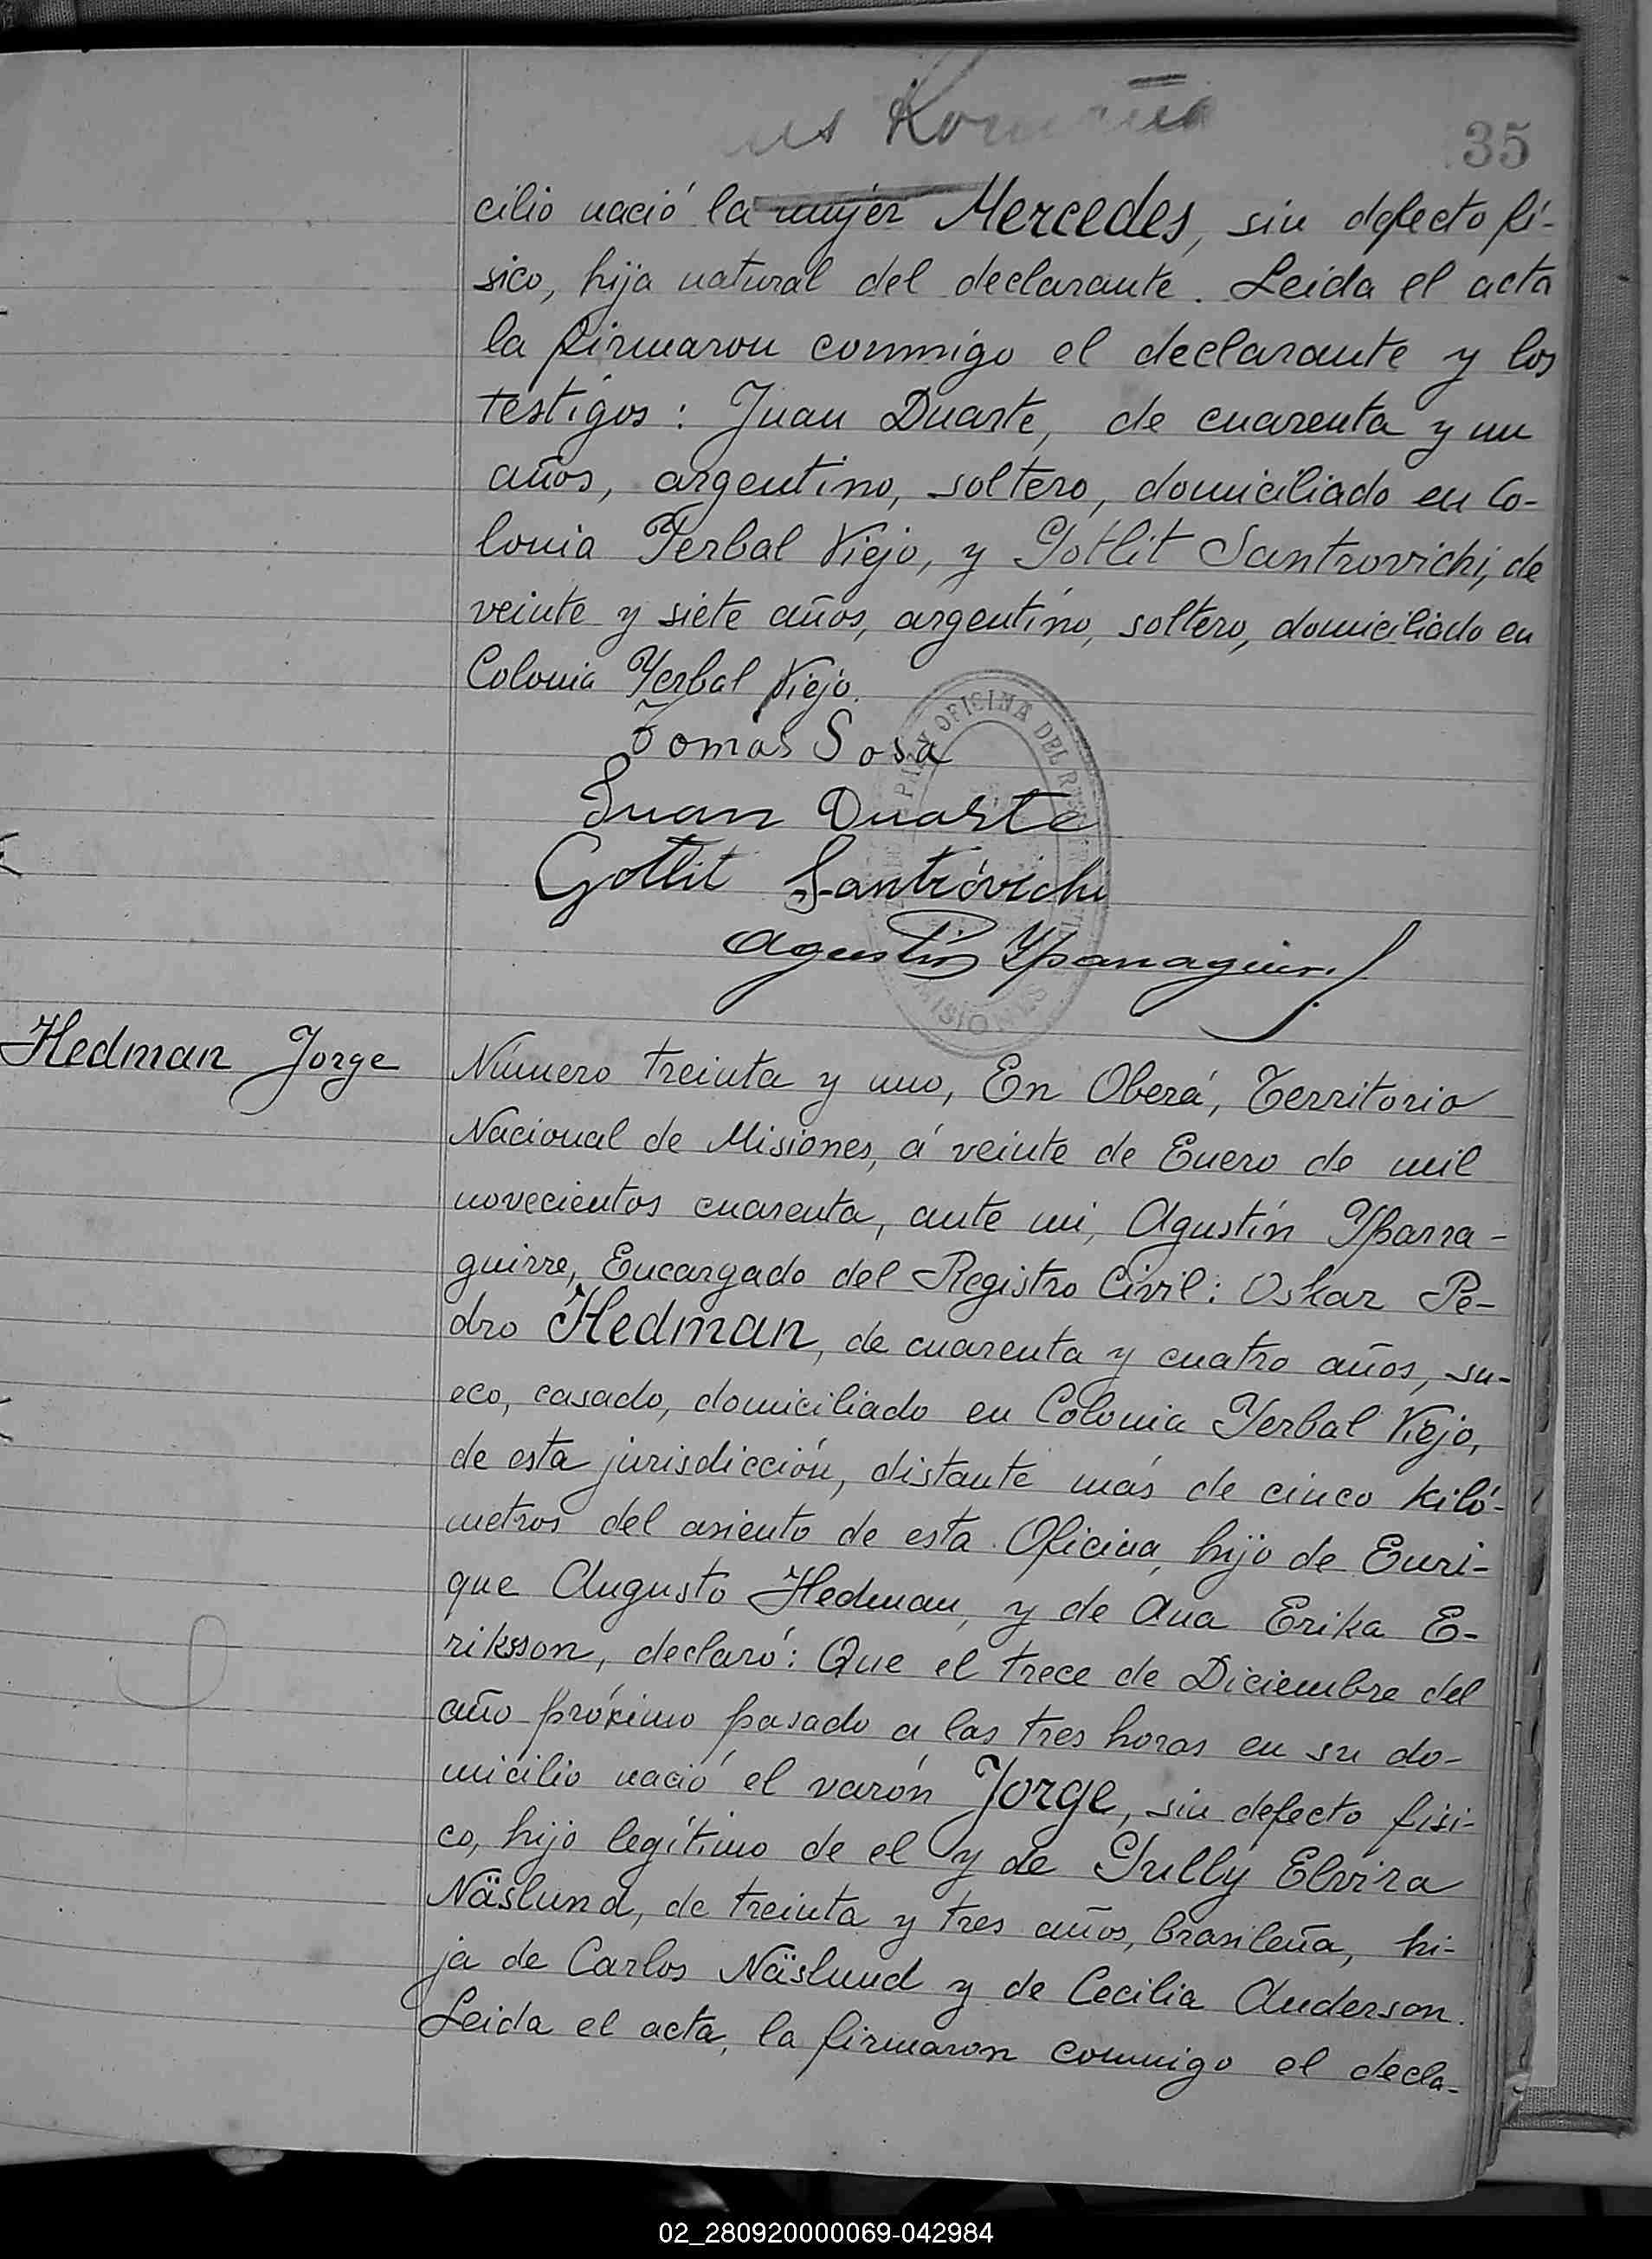 35
cilio nació la mujer Mercedes, sin defecto fí-
sico, hija natural del declarante. Leida el acta
la firmaron conmigo el declarante y los
testigos: Juan Duarte, de cuarenta y un
años, argentino, soltero, domiciliado en Co-
lonia Yerbal Viejo, y Gotlit Santrovichi, de
veinte y siete años, argentino, soltero, domiciliado en
Colonia Yerbal Viejo.
Tomás Sosa
Juan Duarte
Gotlit Santróvichi
OFICINA DEL
MISIONES
Hedman Jorge
Número treinta y uno, En Oberá, Territorio
Nacional de Misiones, á veinte de Enero de mil
novecientos cuarenta, ante mi, Agustín Ybarra-
guirre, Encargado del Registro Civil: Oskar Pe-
dro Hedman, de cuarenta y cuatro años, su-
eco, casado, domiciliado en Colonia Yerbal Viejo,
de esta jurisdicción, distante más de cinco kiló-
metros del asiento de esta Oficina, hijo de Enri-
que Augusto Hedman, y de Ana Erika E-
riksson, declaró: Que el trece de Diciembre del
año próximo pasado a las tres horas en su do-
micilio nació el varón Jorge, sin defecto físi-
co, hijo legítimo de el y de Gully Elvira
Näslund, de treinta y tres años, brasileña, hi-
ja de Carlos Näslund y de Cecilia Anderson.
Leida el acta, la firmaron conmigo el decla-
02_280920000069-042984